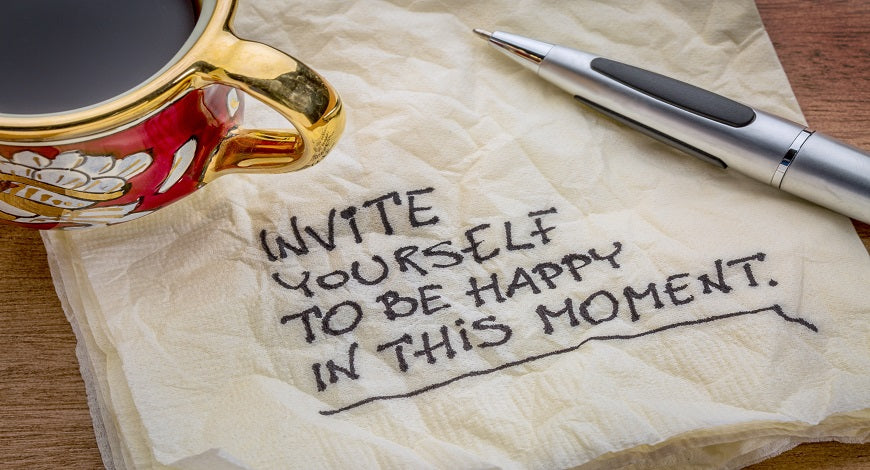 INViTE
YOURSELF
TO BE HAPPY
IN THiS MOMENT.